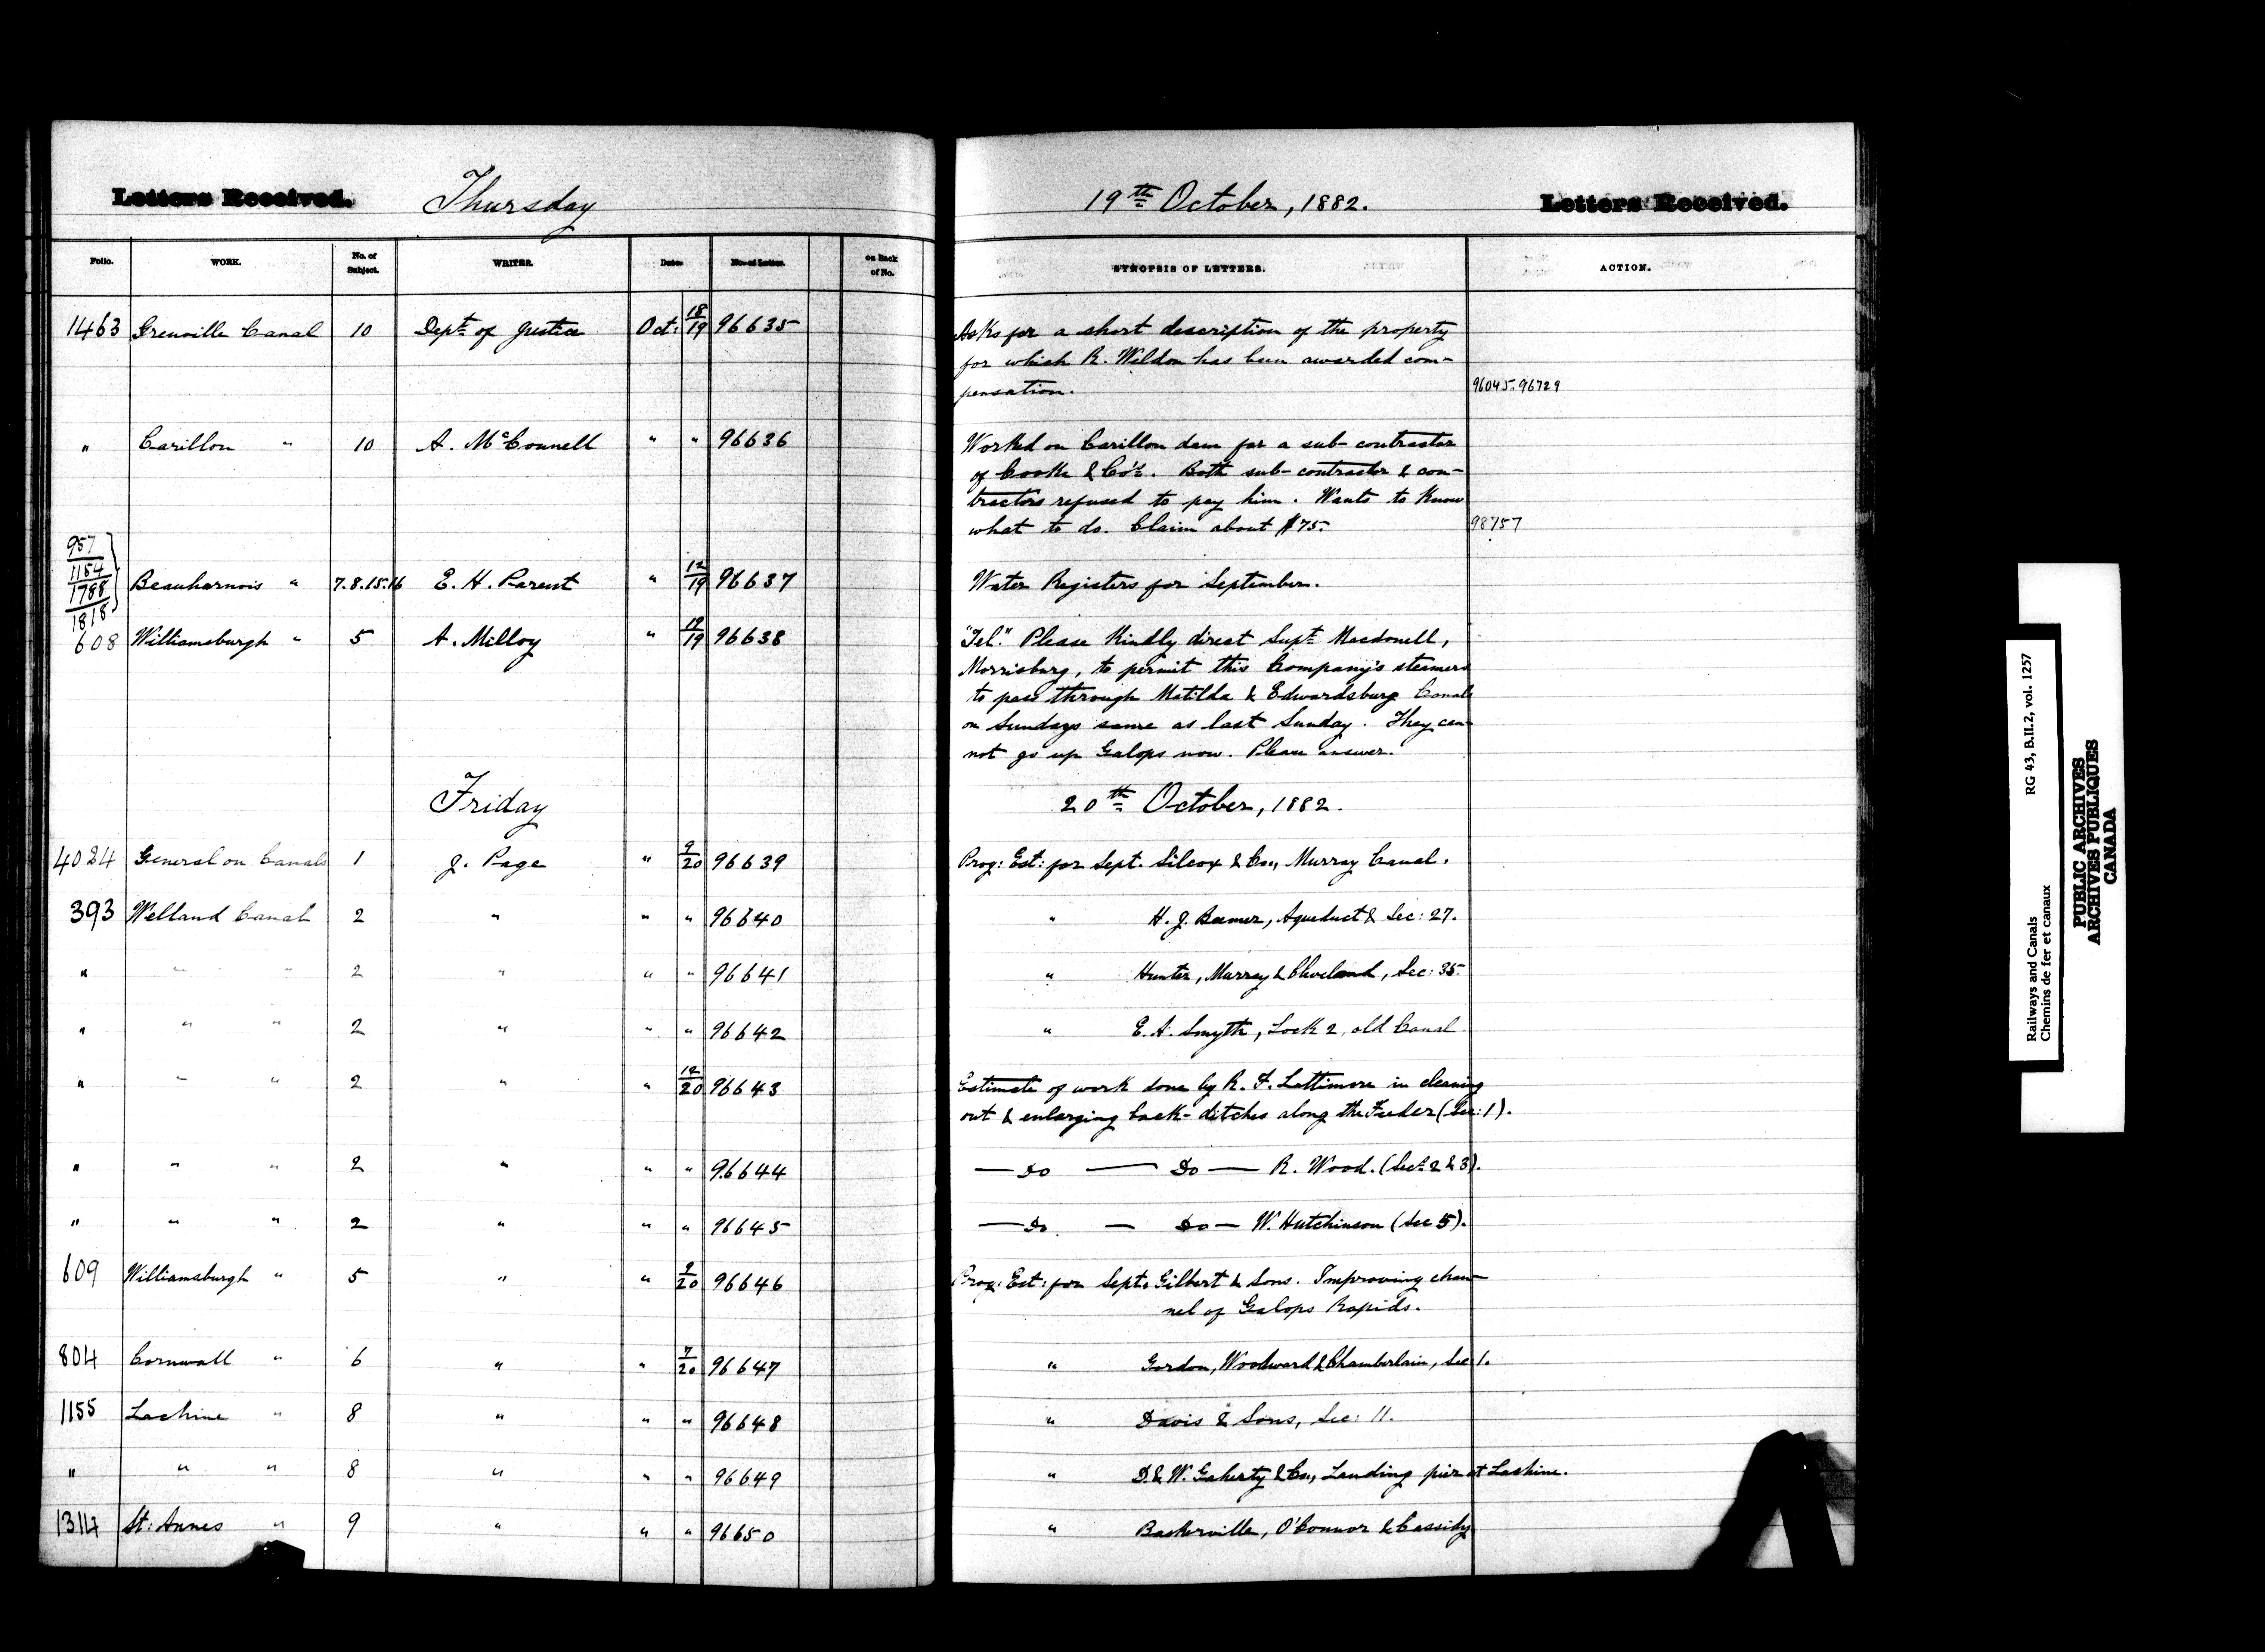 Letters Received. Thursday 19th October, 1882. Letters Received.
Folio. WORK. No. of Subject. WRITER. Date. No. of Letter. on Back of No. SYNOPSIS OF LETTERS. ACTION.
1463 Grenville Canal 10 Dept. of Justice Oct: 18/19 96635 Asks for a short description of the property
for which R. Weldon has been awarded com-
pensation. 96045.96729
" Carillon " 10 A. McConnell " " 96636 Worked on Carillon dam for a sub-contractor
of Cooke & Co's. Both sub-contractor & con-
tractors refused to pay him. Wants to know
what to do. Claim about $75. 98757
957
1154
1788
1818
Beauharnois " 7.8.15.16 E. H. Parent " 12/19 96637 Water Registers for September.
608 Williamsburgh " 5 A. Milloy " 19/19 96638 "Tel." Please kindly direct Supt. Macdonell,
Morrisburg, to permit this Company's steamers
to pass through Matilda & Edwardsburg Canals
on Sundays same as last Sunday. They can-
not go up Galops now. Please answer.
Friday 20th October, 1882.
4024 General on Canals 1 J. Page " 9/20 96639 Prog: Est: for Sept. Silcox & Co., Murray Canal.
393 Welland Canal 2 " " " 96640 " H. J. Beemer, Aqueduct & Sec: 27.
" " " 2 " " " 96641 " Hunter, Murray & Cleveland, Sec: 35.
" " " 2 " " " 96642 " E. A. Smyth, Lock 2, old Canal
" " " 2 " " 12/20 96643 Estimate of work done by R. F. Lattimore in cleaning
out & enlarging back-ditches along the Feeder (Sec: 1).
" " " 2 " " " 96644 — Do — Do — R. Wood. (Secs 2 & 3).
" " " 2 " " " 96645 — Do — Do — W. Hutchinson (Sec 5).
609 Williamsburgh " 5 " " 9/20 96646 Prog: Est: for Sept. Gilbert & Sons. Improving chan-
nel of Galops Rapids.
804 Cornwall " 6 " " 7/20 96647 " Gordon, Woodward & Chamberlain, Sec 1.
1155 Lachine " 8 " " " 96648 " Davis & Sons, Sec: 11.
" " " 8 " " " 96649 " D. & W. Gaherty & Co., Landing pier at Lachine.
1314 St: Annes " 9 " " " 96650 " Baskerville, O'Connor & Cassidy
Railways and Canals RG 43, B.II.2, vol. 1257
Chemins de fer et canaux
PUBLIC ARCHIVES
ARCHIVES PUBLIQUES
CANADA